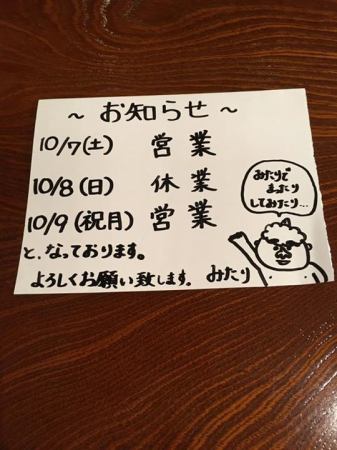 ～ お知らせ ～
10/7(土) 営業
10/8(日) 休業
10/9(祝月) 営業
と、なっております。
よろしくお願い致します。 みたり
みたりで
まったり
してみたり…